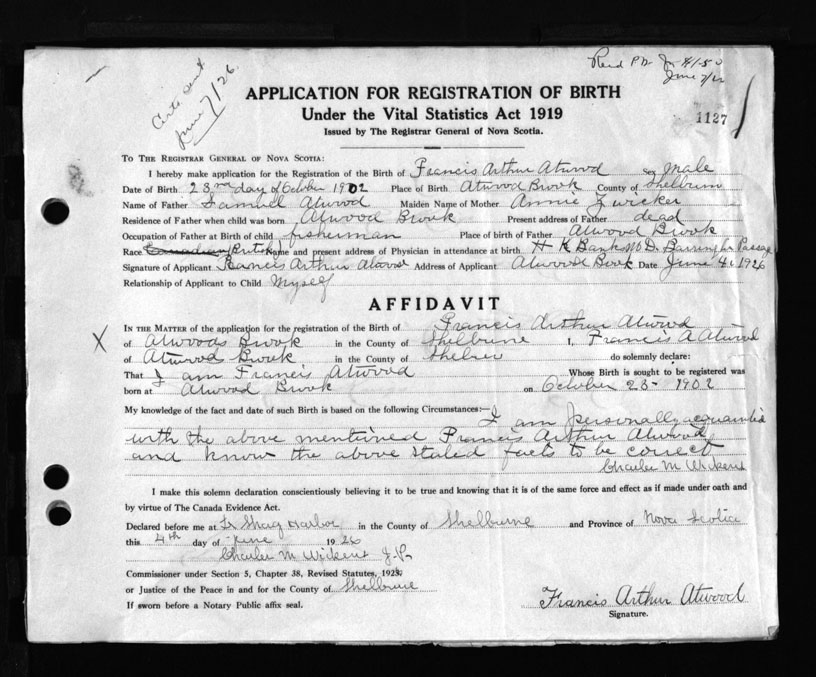 Certs sent
June 7/26.
Recd P.N. Jr #1.50
June 7/26
APPLICATION FOR REGISTRATION OF BIRTH
Under the Vital Statistics Act 1919
1127
Issued by The Registrar General of Nova Scotia.
TO THE REGISTRAR GENERAL OF NOVA SCOTIA:
I hereby make application for the Registration of the Birth of Francis Arthur Atwood Sex Male
Date of Birth 23rd day of October 1902 Place of Birth Atwood Brook County of Shelburn
Name of Father Samuel Atwood Maiden Name of Mother Annie Zwicker
Residence of Father when child was born Atwood Brook Present address of Father dead
Occupation of Father at Birth of child fisherman Place of birth of Father Atwood Brook
Race Canadian British Name and present address of Physician in attendance at birth H K Banks M D. Barrington Passage
Signature of Applicant Francis Arthur Atwood Address of Applicant Atwood Brook Date June 4, 1926
Relationship of Applicant to Child Myself
AFFIDAVIT
IN THE MATTER of the application for the registration of the Birth of Francis Arthur Atwood
X of Atwoods Brook in the County of Shelburne I, Francis A Atwood
of Atwood Brook in the County of do solemnly declare:
That I am Francis Atwood Whose Birth is sought to be registered was
born at Atwood Brook on October 23- 1902
My knowledge of the fact and date of such Birth is based on the following Circumstances:— I am personally acquainted
with the above mentioned Francis Arthur Atwood
and know the above stated facts to be correct
Charles M Wickens
I make this solemn declaration conscientiously believing it to be true and knowing that it is of the same force and effect as if made under oath and
by virtue of The Canada Evidence Act.
Declared before me at Shag Harbor in the County of Shelburne and Province of Nova Scotia
this 4th day of June 1926
Charles M Wickens J.P.
Commissioner under Section 5, Chapter 38, Revised Statutes, 1923.
or Justice of the Peace in and for the County of Shelburne
If sworn before a Notary Public affix seal.
Francis Arthur Atwood
Signature.